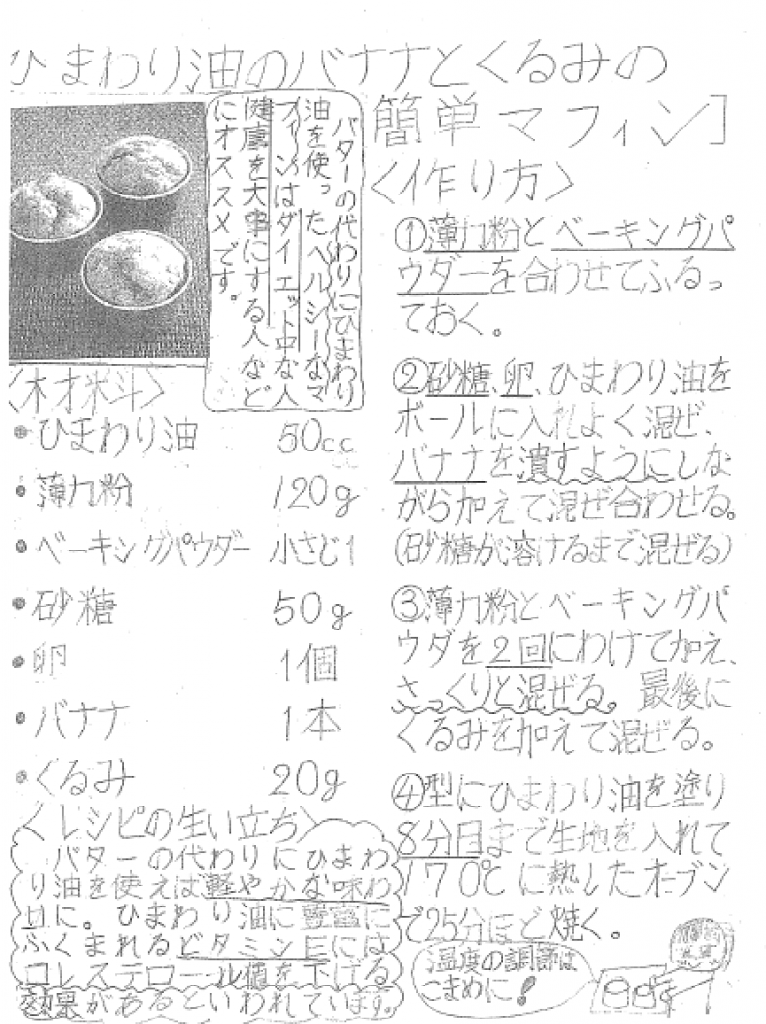 ひまわり油のバナナとくるみの
簡単マフィン]
バターの代わりにひまわり
油を使ったヘルシーなマ
フィンはダイエット中な人
健康を大事にする人など
にオススメです。
〈材料〉
・ひまわり油 50cc
・薄力粉 120g
・ベーキングパウダー 小さじ1
・砂糖 50g
・卵 1個
・バナナ 1本
・くるみ 20g
〈レシピの生い立ち〉
バターの代わりにひまわ
り油を使えば軽やかな味わ
いに。ひまわり油に豊富に
ふくまれるビタミンEには
コレステロール値を下げる
効果があるといわれています。
〈作り方〉
①薄力粉とベーキングパ
ウダーを合わせてふるっ
ておく。
②砂糖、卵、ひまわり油を
ボールに入れよく混ぜ、
バナナを潰すようにしな
がら加えて混ぜ合わせる。
(砂糖が溶けるまで混ぜる)
③薄力粉とベーキングパ
ウダを2回にわけて加え、
さっくりと混ぜる。最後に
くるみを加えて混ぜる。
④型にひまわり油を塗り
8分目まで生地を入れて
170℃に熱したオーブン
で25分ほど焼く。
温度の調節は
こまめに!